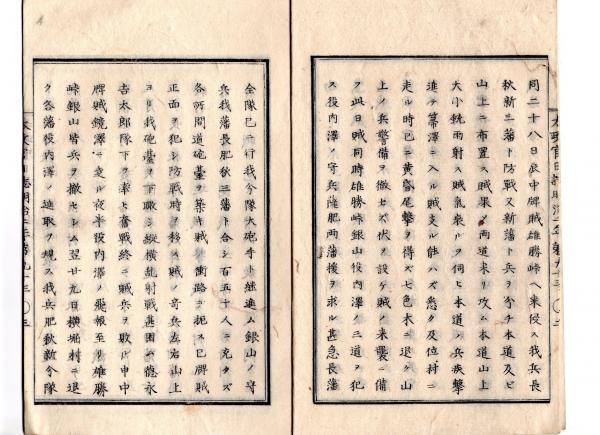 太政官日誌明治二年第九十三
同二十八日辰中牌賊雄勝峠ヘ来侵ス我兵長
秋新三藩ト防戰又新藩ト兵ヲ分チ本道及ヒ
山上ニ布置ス賊果〆両道来リ攻ム本道山上
大小銃雨射ス賊氣衰ルヲ伺ヒ本道ノ兵疾撃
進テ簗澤ニ入ル賊支ル能ハス悉ク及位村ニ
走ル時已ニ黄昏尾撃ヲ得ス七色木ニ退ク山
上ノ兵警備ヲ徹セス伏ヲ設ケ賊ノ来襲ニ備
ク此日賊同時雄勝峠銀山役内澤ノ三道ヲ犯
ス役内澤ノ守兵隆肥両藩援ヲ求ル甚急長藩
全隊已ニ行我令隊大砲手ト継進ム銀山ノ守
兵我藩長肥秋三藩ト合シ百五十人ニ充タス
各所間道砲臺ヲ築キ賊ノ衝路ヲ扼ス巳牌賊
正面ヲ犯シ防戰時ヲ移ス賊ノ奇兵左右山上
ヨリ我砲臺ヲ下瞰シ縦横乱射戰甚困ム徳永
吉太郎隊下ヲ率ヒ奮戰終ニ賊兵ヲ敗ル申中
牌賊鏡澤ニ走ル夜半役内澤ノ飛報至リ雄勝
峠銀山皆兵ヲ撤セシム翌廿九日横堀村ニ退
ク各藩役内澤ノ進取ヲ規ス我兵肥秋新令隊